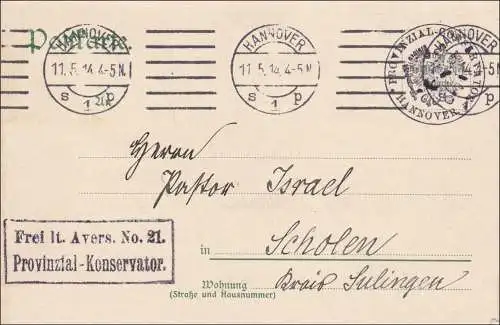 Postkarte.
HANNOVER
11.5.14.4-5N.
s 1 p
HANNOVER
11.5.14.4-5N.
s 1 p
PROVINZIAL-KONSERVATOR
HANNOVER
Herrn
Pastor Israel
Frei lt. Avers. No. 21.
Provinzial-Konservator.
in Scholen
Wohnung Kreis Sulingen
(Straße und Hausnummer)